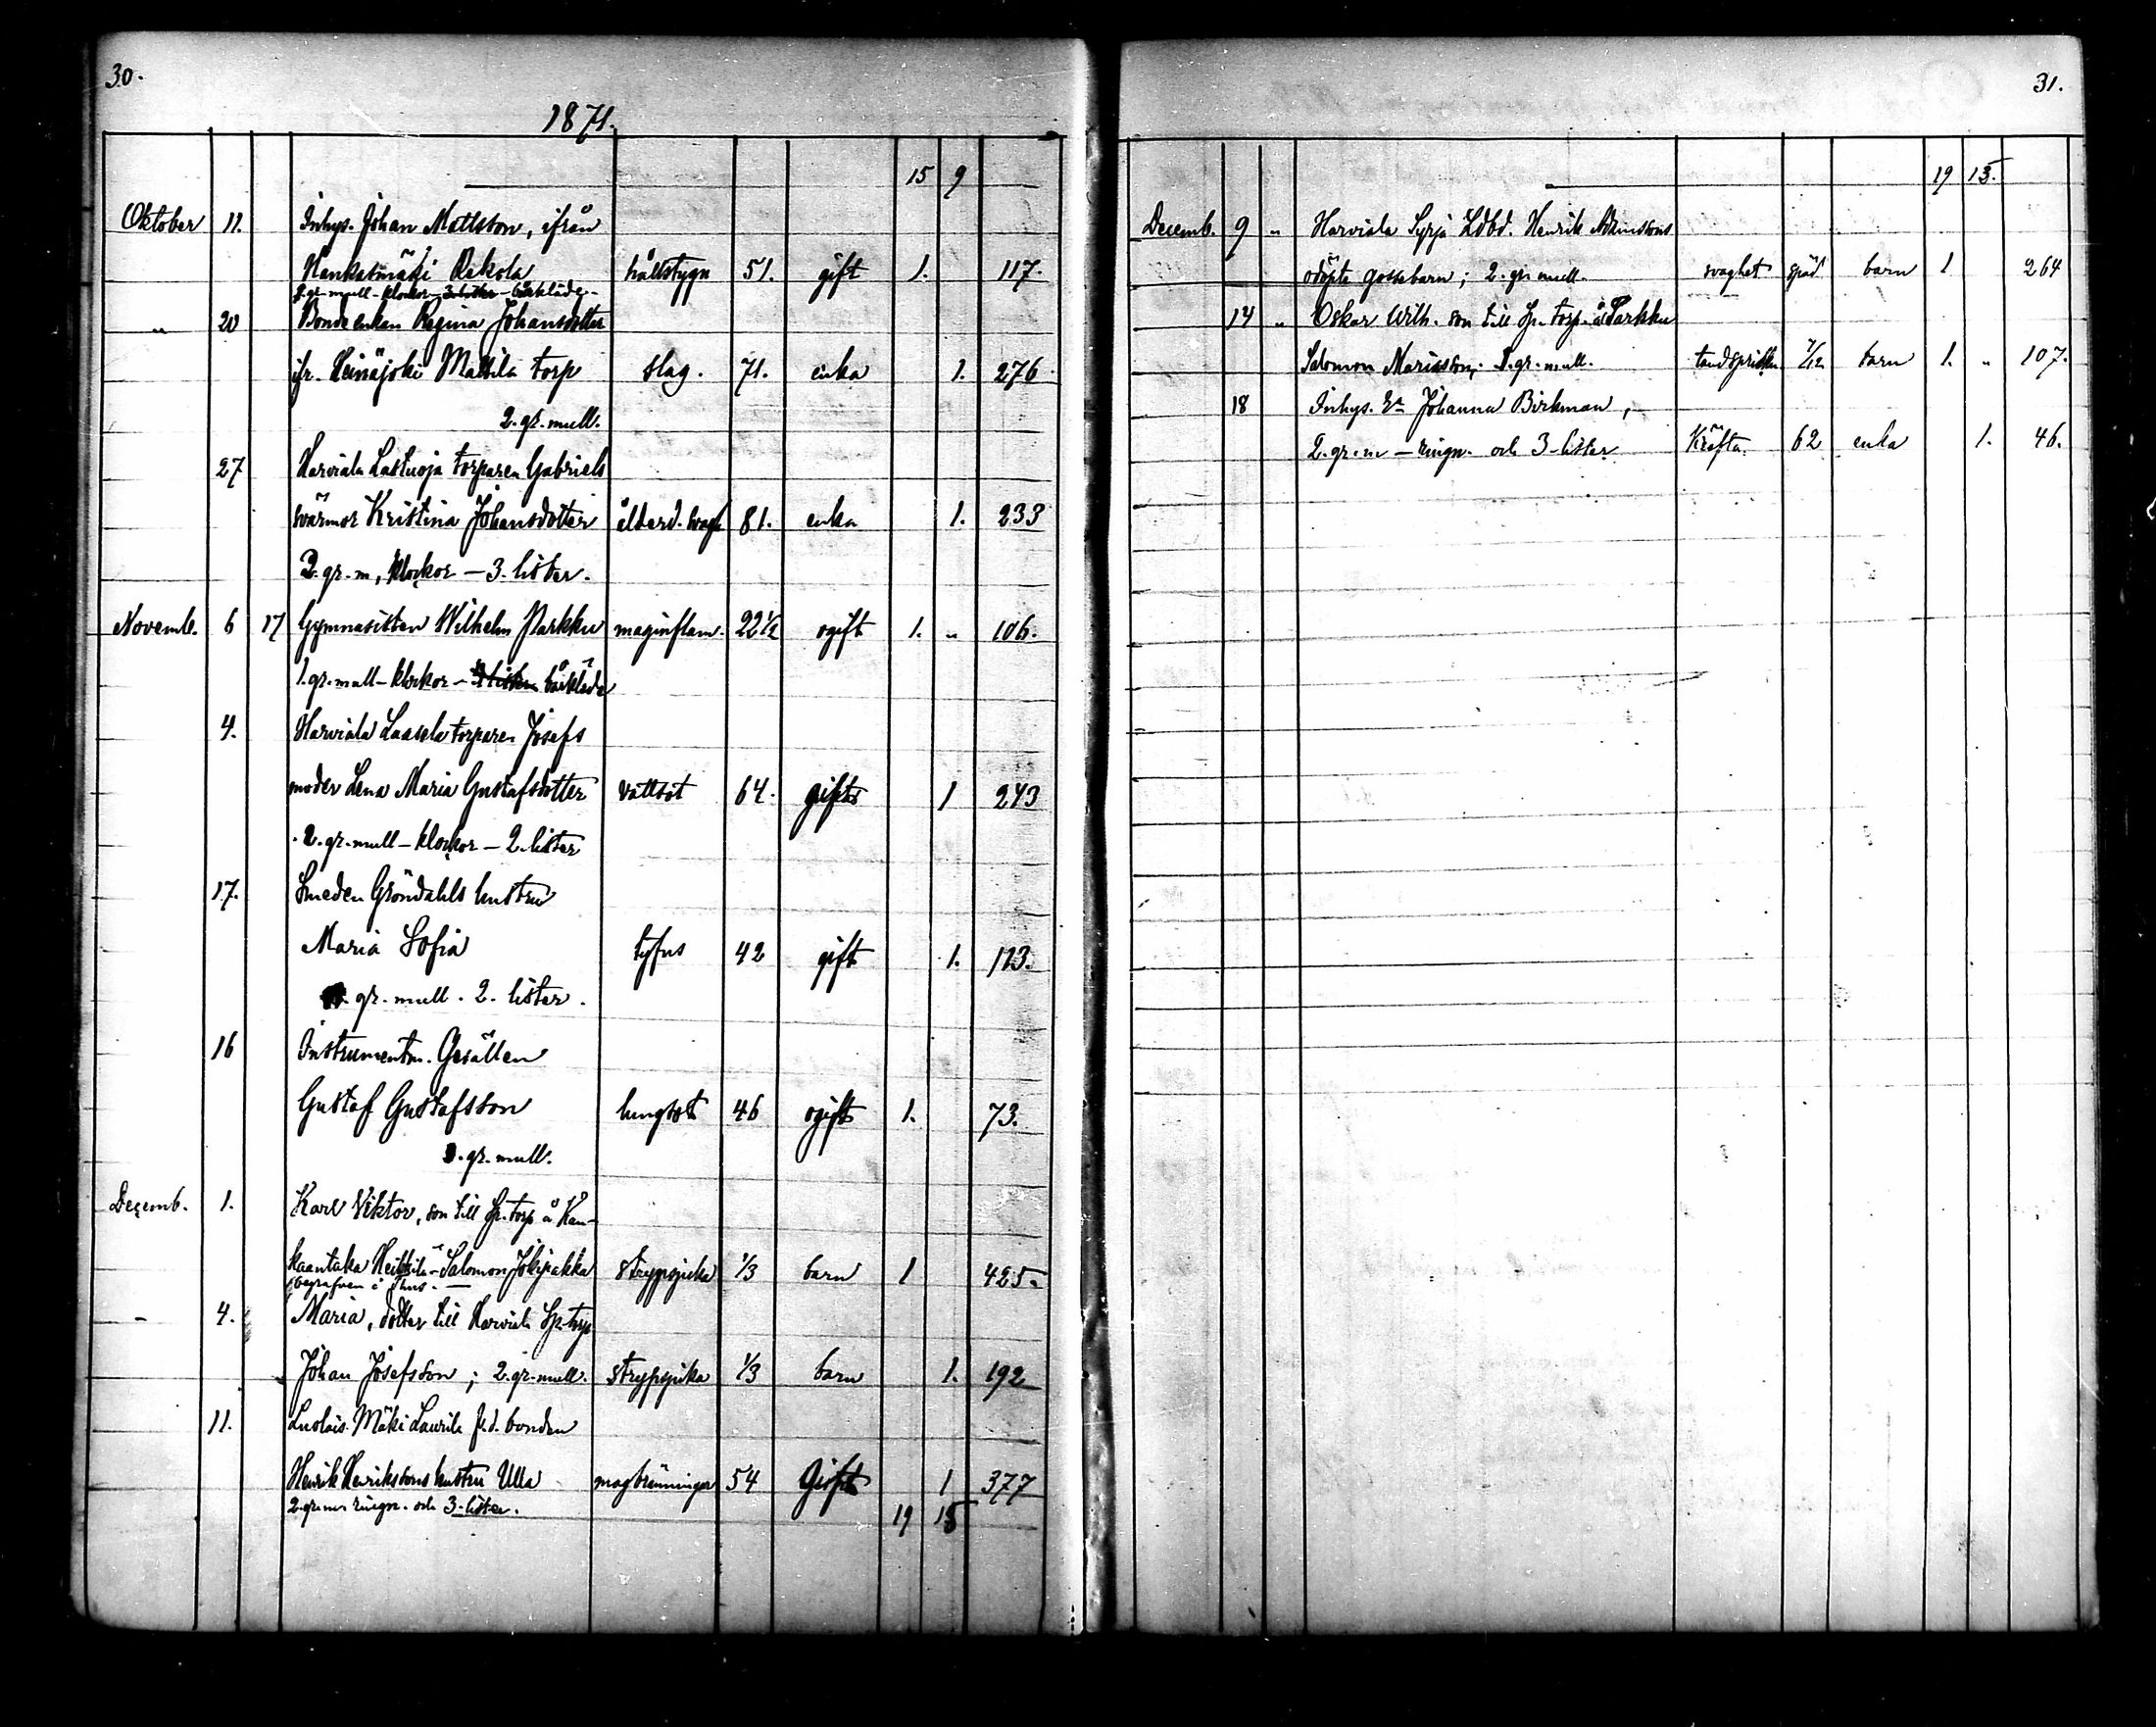 30.
1871.
15 9
Oktober 11. Inhys. Johan Mattsson, ifrån
Hankasmäki Rekola hållstygn 51. gift 1. 117.
2. gr. mull - klockor - 3 lister - bårkläde -
" 20 Bonde enkan Regina Johansdotter
ifr. Heinäjoki Mattila torp slag. 71. enka 1. 276
2. gr. mull.
27 Harviala Lastuoja torparen Gabriels
svärmor Kristina Johansdotter ålderd. svagh 81. enka 1. 233
2. gr. m, klockor - 3. lister.
Novemb. 6 17 Gymnasisten Wilhelm Parkku maginflam. 22 1/2 ogift 1. " 106.
1. gr. mull - klockor - bårkläde
4. Harviala Laasola torparen Josefs
moder Lena Maria Gustafsdotter vattsot 64. gift 1 243
2. gr. mull - klockor - 2. lister
17. Smeden Gröndahls hustru
Maria Sofia tyfus 42 gift 1. 113.
gr. mull. 2. lister.
16 Instrumentm. Gesällen
Gustaf Gustafsson lungsot 46 ogift 1. 73.
gr. mull.
Decemb. 1. Karl Viktor, son till Sp. torp. å Kan-
kaantaka Heikkilä Salomon Jokipakka strypsjuka 1/3 barn 1 425.
begrafven i Jhus.
- 4. Maria, dotter till Harviala Sp. torp
Johan Josefsson; 2. gr. mull. strypsjuka 1/3 barn 1. 192
11. Luolais Mäki Laurila f.d. bonden
Henrik Henrikssons hustru Ulla magbränningar 54 Gift 1 377
2. gr. m. ringn. och 3 - lister.
19 15
31.
19 13.
Decemb. 9 " Harviala Syrjä Ldbd. Henrik
odöpta gossebarn; 2. gr. mull. svaghet späd barn 1 264
14 " Oskar Wilh. son till Sp. torp. å Parkku
Salomon Mariasson; gr. mull. tandsprickn. 7/12 barn 1. " 107.
18 Inhys. Ea Johanna Birkman,
2. gr. m - ringn. och 3 - lister Kräfta 62 enka 1. 46.